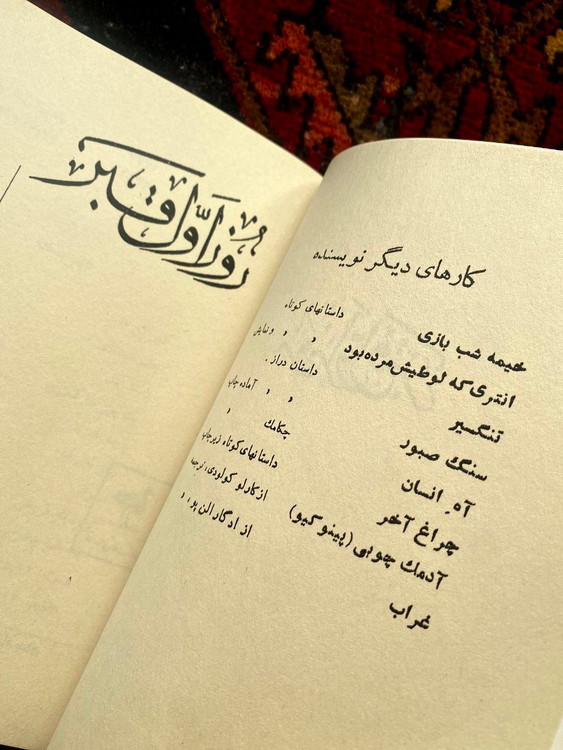 کارهای دیگر نویسنده
خیمه شب بازی داستانهای کوتاه
انتری که لوطیش مرده بود ، ، و نمایش
تنگسیر داستان دراز .
سنگ صبور ، ، آماده چاپ
آه. انسان چکامك ،
چراغ آخر داستانهای کوتاه زیرچاپ
آدمك چوبی (پینوکیو) از کارلو کولودی، ترجمه
غراب از ادگار الن پو ، ،
روز اوّل قبر